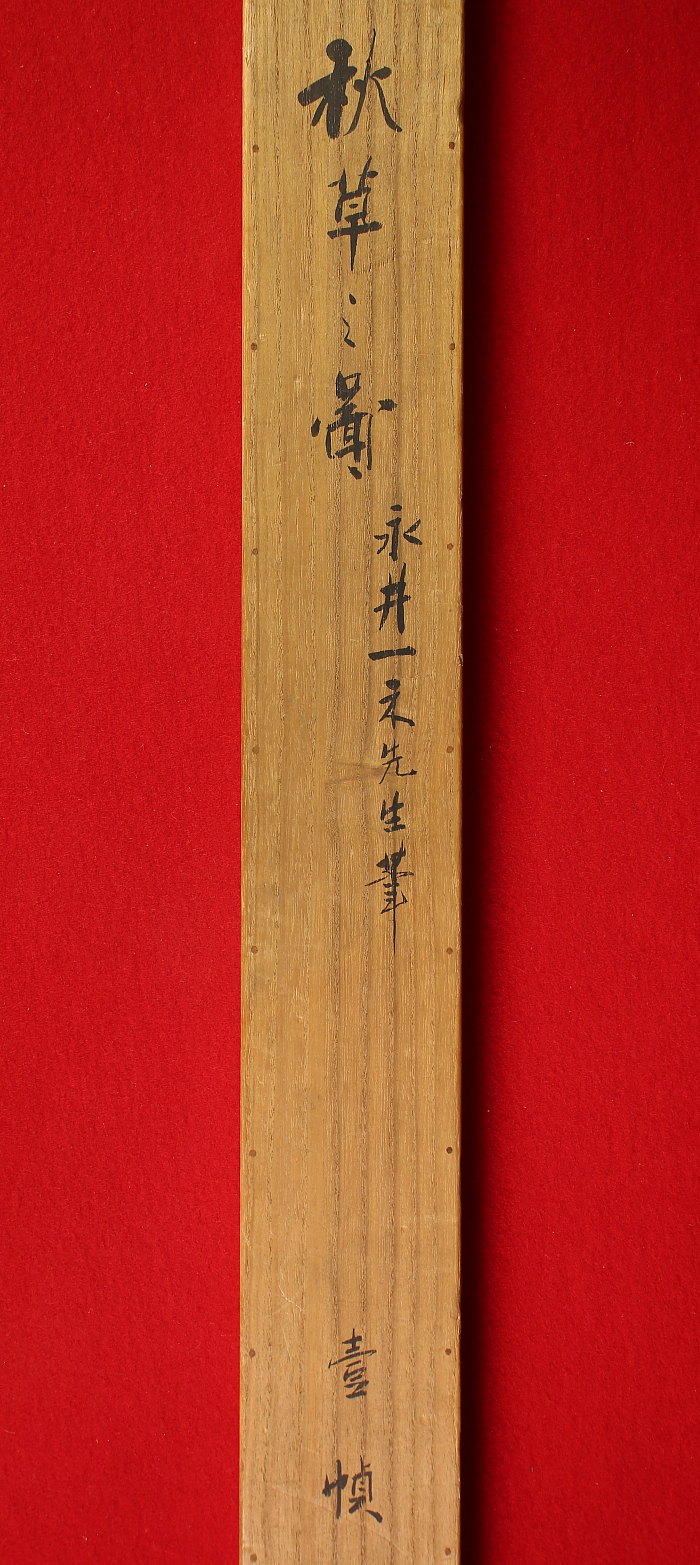 秋草之圖
永井一禾先生筆
壹幀